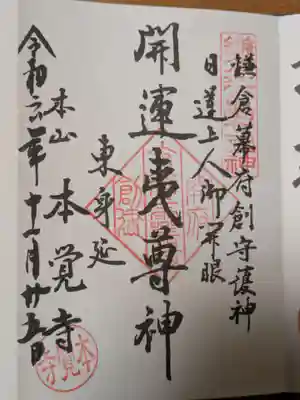 鎌倉幕府創守護神
日蓮上人御開眼
開運夷尊神
東身延
本山 本覺寺
令和六年十一月廿五日